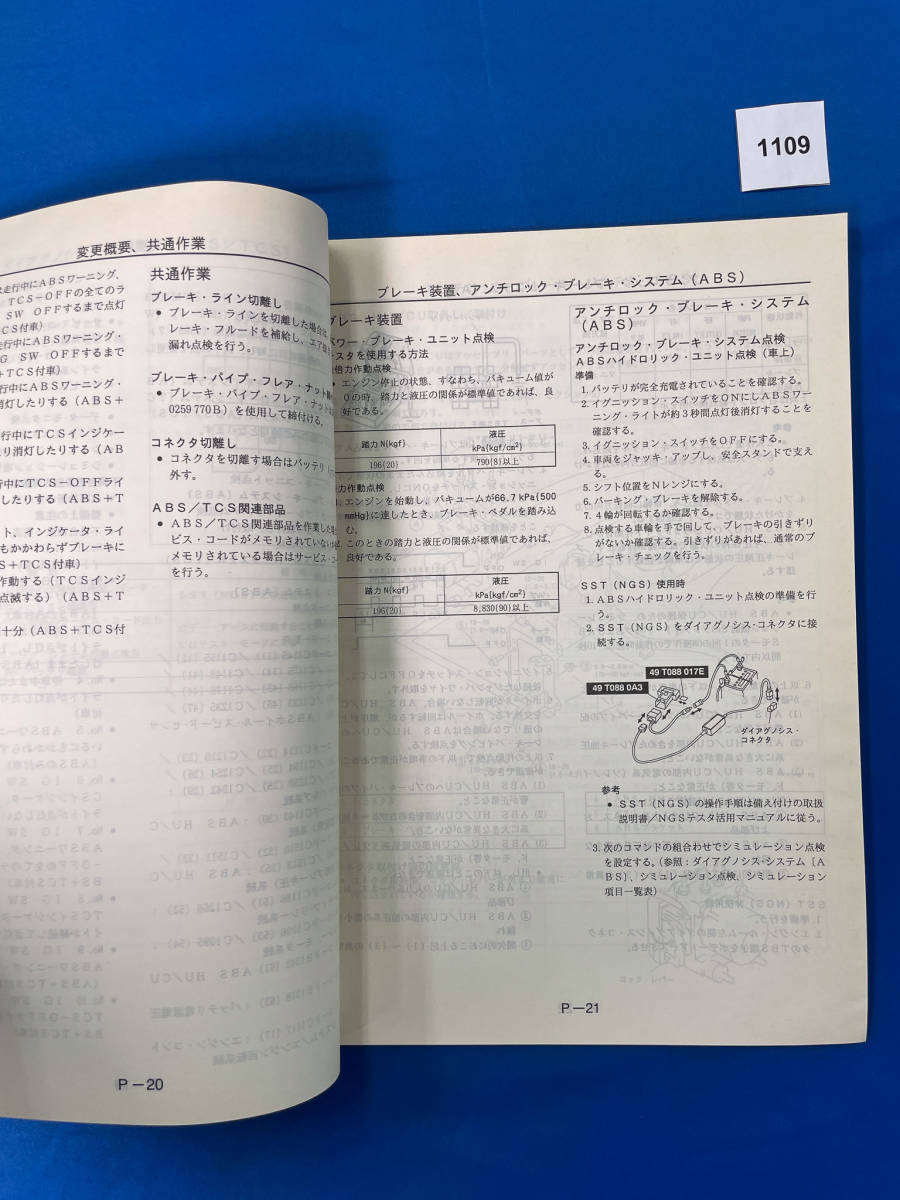 1109
変更概要、共通作業
走行中にABSワーニング、
TCS−OFFの全てのラ
SW OFFするまで点灯
CS付車)
行中にABSワーニング・
G SW OFFするまで
+TCS付車)
行中にABSワーニング・
消灯したりする(ABS+
行中にTCSインジケー
り消灯したりする(AB
行中にTCS−OFFライ
したりする(ABS+T
ト、インジケータ・ライ
もかかわらずブレーキに
S+TCS付車)
作動する(TCSインジ
点滅する)(ABS+T
十分(ABS+TCS付
共通作業
ブレーキ・ライン切離し
● ブレーキ・ラインを切離した場合は
レーキ・フルードを補給し、エア
漏れ点検を行う。
ブレーキ・パイプ・フレア・ナット
● ブレーキ・パイプ・フレア・ナット
0259 770B)を使用して締付ける。
コネクタ切離し
● コネクタを切離す場合はバッテリ
外す。
ABS/TCS関連部品
● ABS/TCS関連部品を作業した
ビス・コードがメモリされていない
メモリされている場合はサービス・コー
を行う。
P−20
ブレーキ装置、アンチロック・ブレーキ・システム(ABS)
ブレーキ装置
パワー・ブレーキ・ユニット点検
テスタを使用する方法
倍力作動点検
● エンジン停止の状態、すなわち、バキューム値が
0の時、踏力と液圧の関係が標準値であれば、良
好である。
踏力 N{kgf} 液圧 kPa{kgf/cm²}
196{20} 790{8}以上
力作動点検
1. エンジンを始動し、バキュームが66.7 kPa{500
mmHg}に達したとき、ブレーキ・ペダルを踏み込
む。
2. このときの踏力と液圧の関係が標準値であれば、
良好である。
踏力 N{kgf} 液圧 kPa{kgf/cm²}
196{20} 8,830{90}以上
アンチロック・ブレーキ・システム
(ABS)
アンチロック・ブレーキ・システム点検
ABSハイドロリック・ユニット点検(車上)
準備
1. バッテリが完全充電されていることを確認する。
2. イグニッション・スイッチをONにしABSワー
ニング・ライトが約3秒間点灯後消灯することを
確認する。
3. イグニッション・スイッチをOFFにする。
4. 車両をジャッキ・アップし、安全スタンドで支え
る。
5. シフト位置をNレンジにする。
6. パーキング・ブレーキを解除する。
7. 4輪が回転するか確認する。
8. 点検する車輪を手で回して、ブレーキの引きずり
がないか確認する。引きずりがあれば、通常のブ
レーキ・チェックを行う。
SST(NGS)使用時
1. ABSハイドロリック・ユニット点検の準備を行
う。
2. SST(NGS)をダイアグノシス・コネクタに接
続する。
49 T088 017E
49 T088 0A3
ダイアグノシス・
コネクタ
参考
● SST(NGS)の操作手順は備え付けの取扱
説明書/NGSテスタ活用マニュアルに従う。
3. 次のコマンドの組合わせでシミュレーション点検
を設定する。(参照:ダイアグノシス・システム〔A
BS〕、シミュレーション点検、シミュレーション
項目一覧表)
P−21